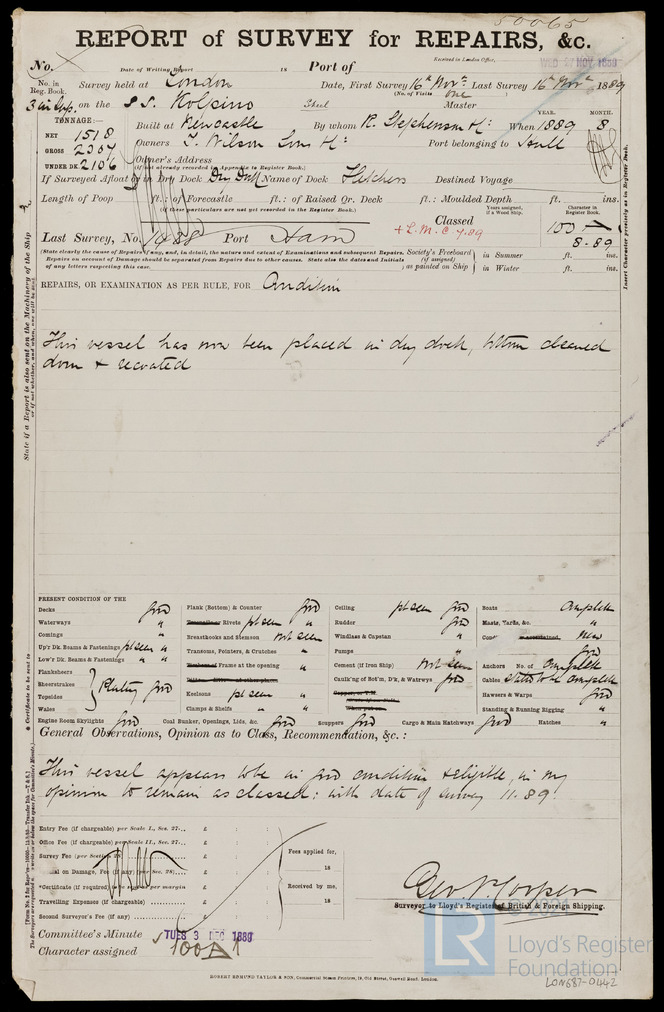 50065
REPORT of SURVEY for REPAIRS, &c.
No. Date of Writing Report 18 Port of Received in London Office, WED 27 NOV 1889
No. in Reg. Book. Survey held at London Date, First Survey 16th Novr Last Survey 16th Novr 1889
(No. of Visits one)
3 in Sup. on the S.S. Kolpino Steel Master
TONNAGE:— YEAR. MONTH.
NET 1518 Built at Newcastle By whom R. Stephenson When 1889 8
GROSS 2307 Owners T. Wilson Sons Port belonging to Hull
UNDER DK. 2106 Owner's Address
(if not already recorded in Appendix to Register Book.)
If Surveyed Afloat or in Dry Dock Dry Dock Name of Dock Fletchers Destined Voyage
Length of Poop ft.: of Forecastle ft.: of Raised Qr. Deck ft.: Moulded Depth ft. ins.
(if these particulars are not yet recorded in the Register Book.)
Years assigned, if a Wood Ship. Character in Register Book.
Classed 100 A
+ L.M.C 7.89 8.89
Last Survey, No. Port Ham
(State clearly the cause of Repairs if any, and, in detail, the nature and extent of Examinations and subsequent Repairs.
Repairs on account of Damage should be separated from Repairs due to other causes. State also the dates and Initials
of any letters respecting this case.
Society's Freeboard (if assigned) as painted on Ship in Summer ft. ins.
in Winter ft. ins.
Insert Character precisely as in Register Book.
REPAIRS, OR EXAMINATION AS PER RULE, FOR Condition
This vessel has now been placed in dry dock, bottom cleaned
down & recoated
State if a Report is also sent on the Machinery of the Ship
PRESENT CONDITION OF THE
Decks good Plank (Bottom) & Counter good Ceiling pt seen good Boats Complete
Waterways " Rivets pt seen " Rudder good Masts, Yards, &c. "
Comings " Breasthooks and Stemson not seen Windlass & Capstan " New
Up'r Dk. Beams & Fastenings pt seen " Transoms, Pointers, & Crutches " Pumps " good
Low'r Dk. Beams & Fastenings " " Frame at the opening " Cement (if Iron Ship) Not seen Anchors No. of Complete
Planksheers Caulk'ng of Bot'm, D'k, & Watrwys good Cables stated to be Complete
Sheerstrakes Plating good
Topsides Keelsons pt seen " Hawsers & Warps good
Wales Clamps & Shelfs " " Standing & Running Rigging "
Engine Room Skylights good Coal Bunker, Openings, Lids, &c. good Scuppers good Cargo & Main Hatchways good Hatches "
General Observations, Opinion as to Class, Recommendation, &c.:
This vessel appears to be in good condition & eligible, in my
opinion to remain as classed: with date of survey 11.89.
Entry Fee (if chargeable) per Scale I., Sec. 27... £ : :
Office Fee (if chargeable) per Scale II., Sec. 27... £ : :
Survey Fee (per Section 28) £ : :
on Damage, Fee (if any) (per Sec. 28) £ : :
*Certificate (if required) as per margin £ : :
Travelling Expenses (if chargeable) £ : :
Second Surveyor's Fee (if any) £ : :
Fees applied for,
18
Received by me,
18
Geo. N. Cooper
Surveyor to Lloyd's Register of British & Foreign Shipping.
Committee's Minute TUES 3 DEC 1889
Character assigned 100A1
ROBERT EDMUND TAYLOR & SON, Commercial Steam Printers, 19, Old Street, Goswell Road, London.
LR
Lloyd's Register
Foundation
LON687-0442